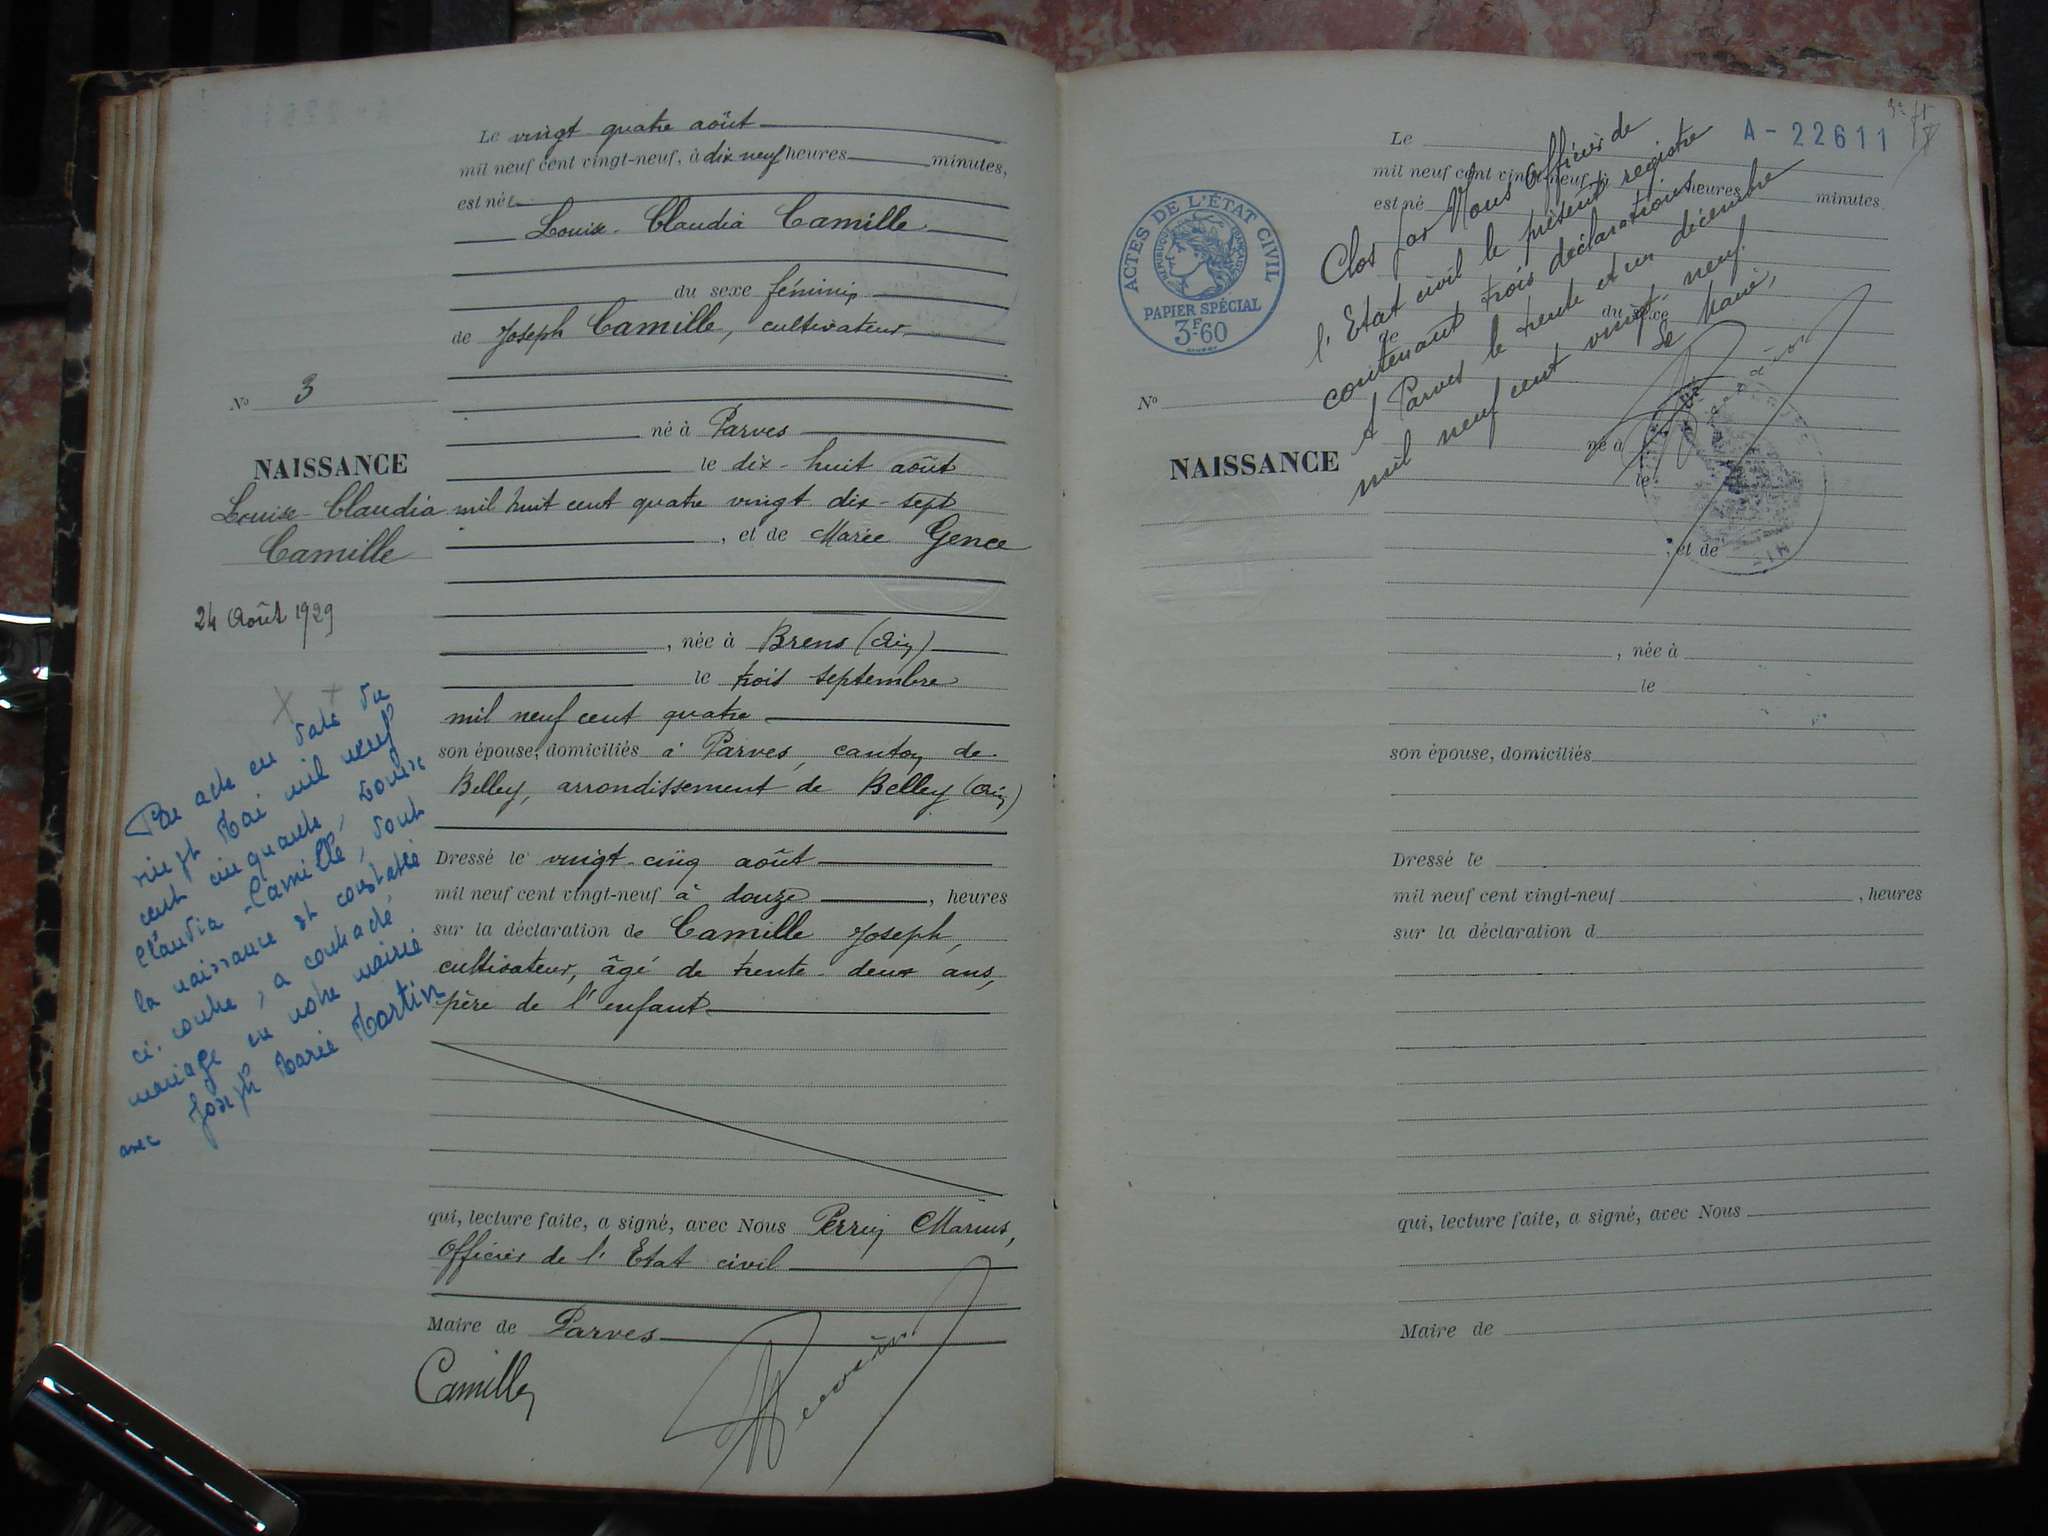 Le vingt quatre août
mil neuf cent vingt-neuf, à dix neuf heures minutes,
est née
Louise Claudia Camille
du sexe féminin
de Joseph Camille, cultivateur
No 3
né à Parves
NAISSANCE
le dix-huit août
Louise Claudia
mil huit cent quatre vingt dix-sept
Camille
, et de Marie Gence
24 Août 1929
, née à Brens (Ain)
le trois septembre
mil neuf cent quatre
son épouse, domiciliés à Parves, canton de
Belley, arrondissement de Belley (Ain)
Par acte en date du
vingt Mai mil neuf
cent cinquante, Louise
Claudia Camille, dont
la naissance est constatée
ci-contre, a contracté
mariage en notre mairie
avec Joseph Marie Martin
Dressé le vingt-cinq août
mil neuf cent vingt-neuf à douze , heures
sur la déclaration de Camille Joseph,
cultivateur, âgé de trente-deux ans,
père de l'enfant
qui, lecture faite, a signé, avec Nous Perrin Marius,
Officier de l'Etat civil
Maire de Parves
Camille
A-22611
Le
mil neuf cent vingt-neuf à heures minutes
est né
ACTES DE L'ÉTAT CIVIL
RÉPUBLIQUE FRANÇAISE
PAPIER SPÉCIAL
3F60
Clos par Nous Officier de
l'Etat civil le présent registre
contenant trois déclarations
A Parves le trente et un décembre
mil neuf cent vingt-neuf.
Le Maire,
du sexe
de
No
né à
NAISSANCE
le
, et de
, née à
le
son épouse, domiciliés
Dressé le
mil neuf cent vingt-neuf , heures
sur la déclaration d
qui, lecture faite, a signé, avec Nous
Maire de